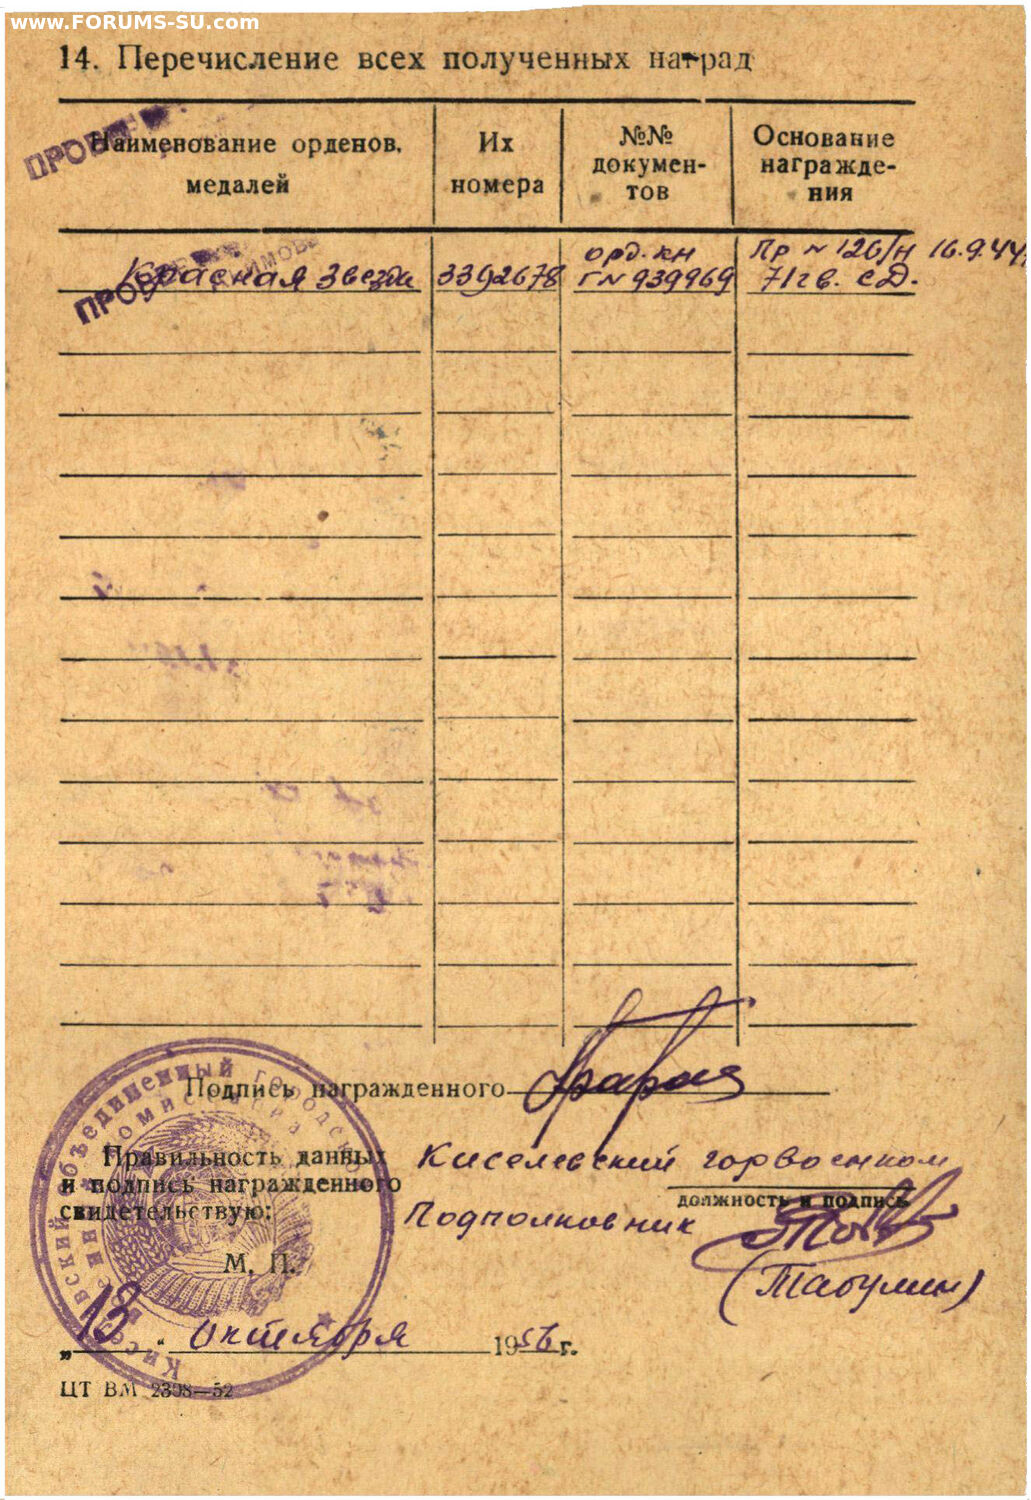 www.FORUMS-SU.com
14. Перечисление всех полученных наград
Наименование орденов, медалей
Их номера
№№ документов
Основание награждения
ПРОВ
Красная Звезда
3392678
орд. кн
Г № 939969
Пр № 126/н 16.9.44,
71 гв. СД.
ПРОВ
Подпись награжденного
Правильность данных
и подпись награжденного
свидетельствую:
М. П.
Киселевский горвоенком
должность и подпись
Подполковник
(Табулин)
„13“ октября 1956 г.
ЦТ ВМ 2398—52